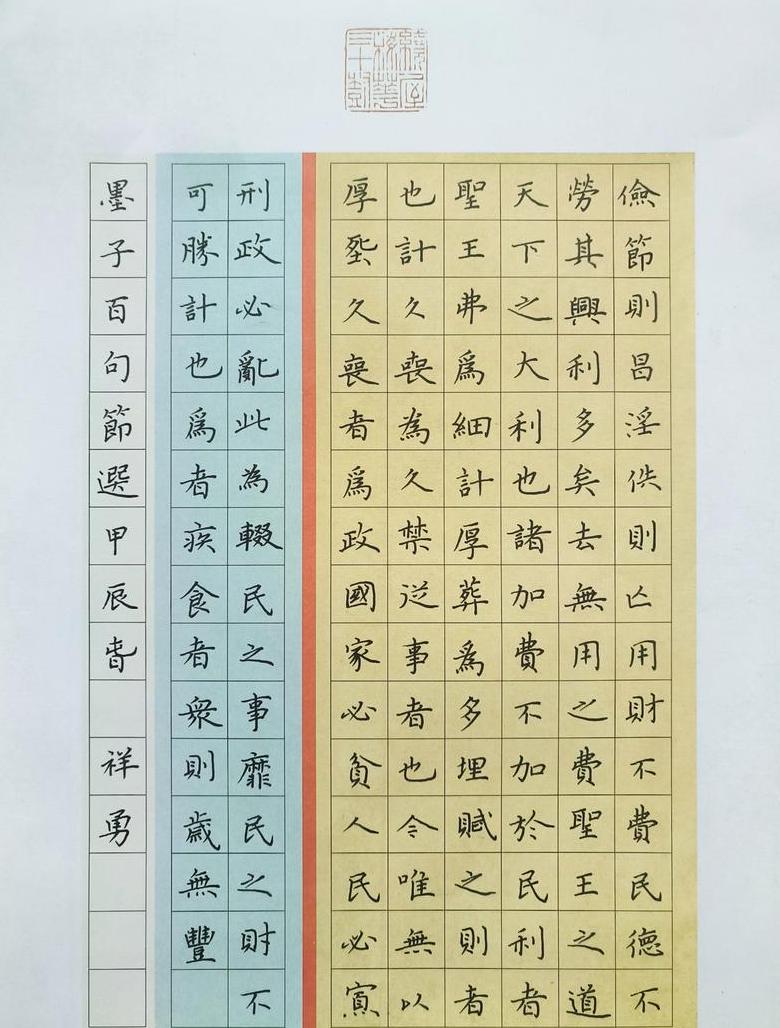 繞屋梅華三十樹
儉節則昌淫佚則亡用財不費民德不
勞其興利多矣去無用之費聖王之道
天下之大利也諸加費不加於民利者
聖王弗爲細計厚葬爲多埋賦之則者
也計久喪為久禁從事者也令唯無以
厚塟久喪者爲政國家必貧人民必寡
刑政必亂此為輟民之事靡民之財不
可勝計也爲者疾食者衆則歲無豐
墨子百句節選甲辰春 祥勇